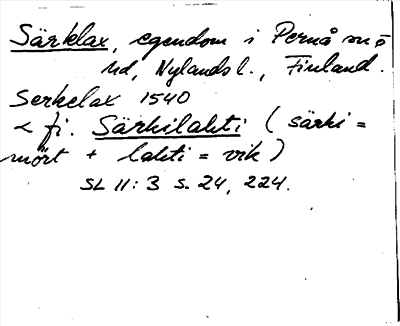 Särklax, egendom i Pernå sn o
Nd, Nylands l., Finland.
Serkelax 1540
< fi. Särkilahti ( särki =
mört + lahti = vik )
SL II: 3 s. 24, 224.